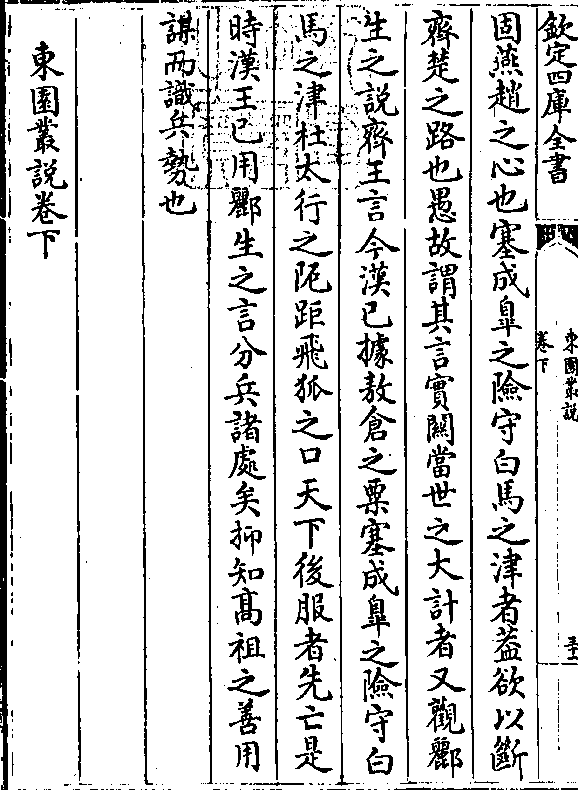 欽定四庫全書
東園叢説
卷下
固燕趙之心也塞成臯之險守白馬之津者葢欲以斷
齊楚之路也愚故謂其言實關當世之大計者又觀酈
生之説齊王言今漢已據敖倉之粟塞成臯之險守白
馬之津杜太行之阨距飛狐之口天下後服者先亡是
時漢王已用酈生之言分兵諸處矣抑知髙祖之善用
謀而識兵勢也
東園叢説卷下